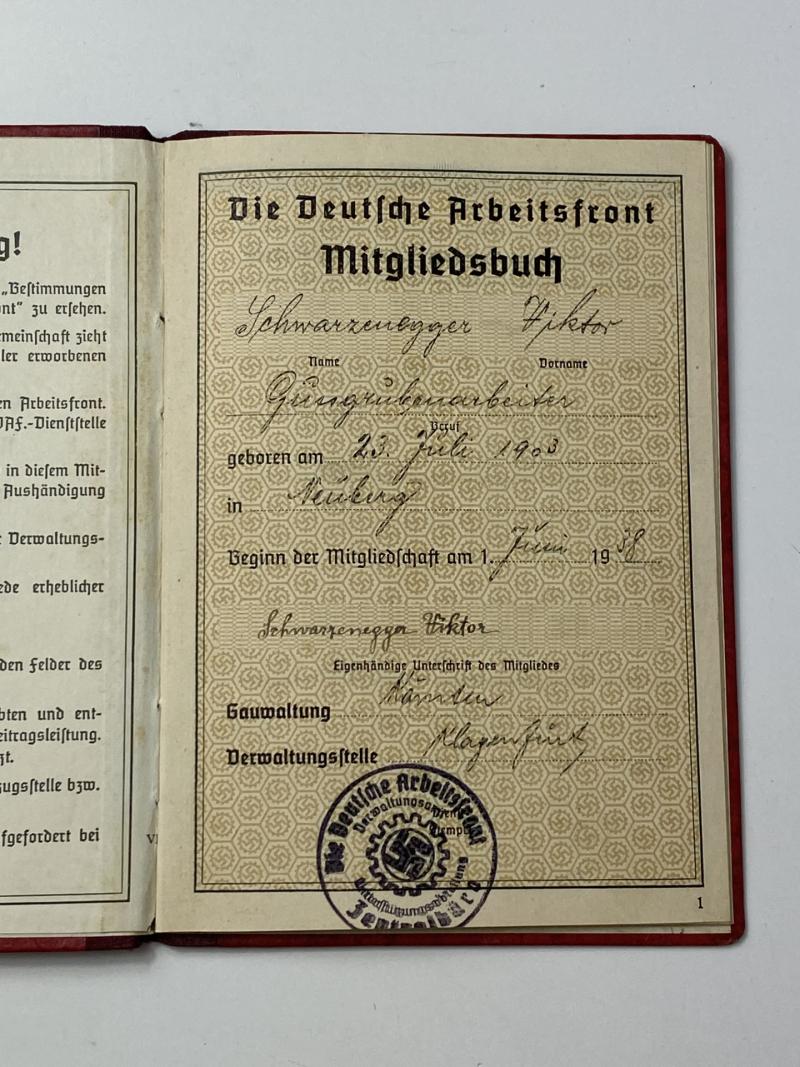 g!
„Bestimmungen
ont" zu ersehen.
emeinschaft zieht
ler erworbenen
en Arbeitsfront.
DAF.-Dienststelle
in diesem Mit-
Aushändigung
Verwaltungs-
ede erheblicher
den Felder des
bten und ent-
eitragsleistung.
zt.
zugsstelle bzw.
fgefordert bei
Die Deutsche Arbeitsfront
Mitgliedsbuch
Schwarzenegger Viktor
Name Vorname
Gussgrubenarbeiter
Beruf
geboren am 23. Juli 1903
in Neuberg
Beginn der Mitgliedschaft am 1. Juni 1938
Schwarzenegger Viktor
Eigenhändige Unterschrift des Mitgliedes
Gauwaltung Kärnten
Verwaltungsstelle Klagenfurt
Die Deutsche Arbeitsfront
Zentralbüro
1